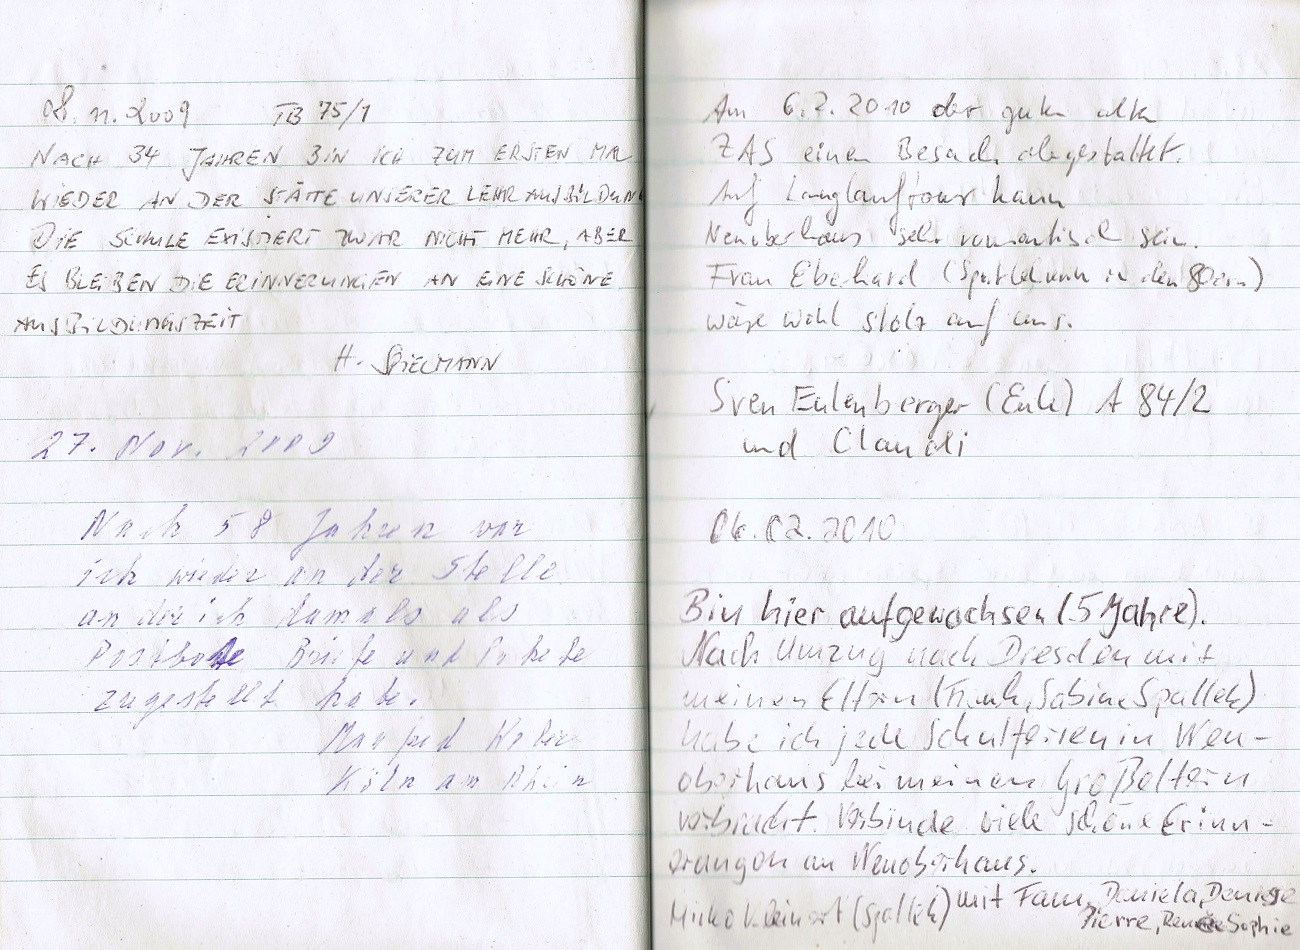 08.11.2009 TB 75/1
NACH 34 JAHREN BIN ICH ZUM ERSTEN MAL
WIEDER AN DER STÄTTE UNSERER LEHRAUSBILDUNG
DIE SCHULE EXISTIERT ZWAR NICHT MEHR, ABER
ES BLEIBEN DIE ERINNERUNGEN AN EINE SCHÖNE
AUSBILDUNGSZEIT
H. SPIELMANN
27. Nov. 2009
Nach 58 Jahren war
ich wieder an der Stelle
an der ich damals als
Postbote Briefe und Pakete
zugestellt habe.
Manfred
Köln am Rhein
Am 6.2.2010 der guten alten
ZAS einen Besuch abgestattet.
Auf Langlauftour kann
Neuoberhaus sehr romantisch sein.
Frau Eberhard (in den 80ern)
wäre wohl stolz auf uns.
Sven Eulenberger (Eule) A 84/2
und Claudi
06.02.2010
Bin hier aufgewachsen (5 Jahre).
Nach Umzug nach Dresden mit
meinen Eltern (Frank, Sabine Spallek)
habe ich jede Schulferien in Neu-
oberhaus bei meinen Großeltern
verbracht. Verbinde viele schöne Erinn-
erungen an Neuoberhaus.
Mirko (Spallek) mit Fam. Daniela, Denise
Pierre, Renée Sophie